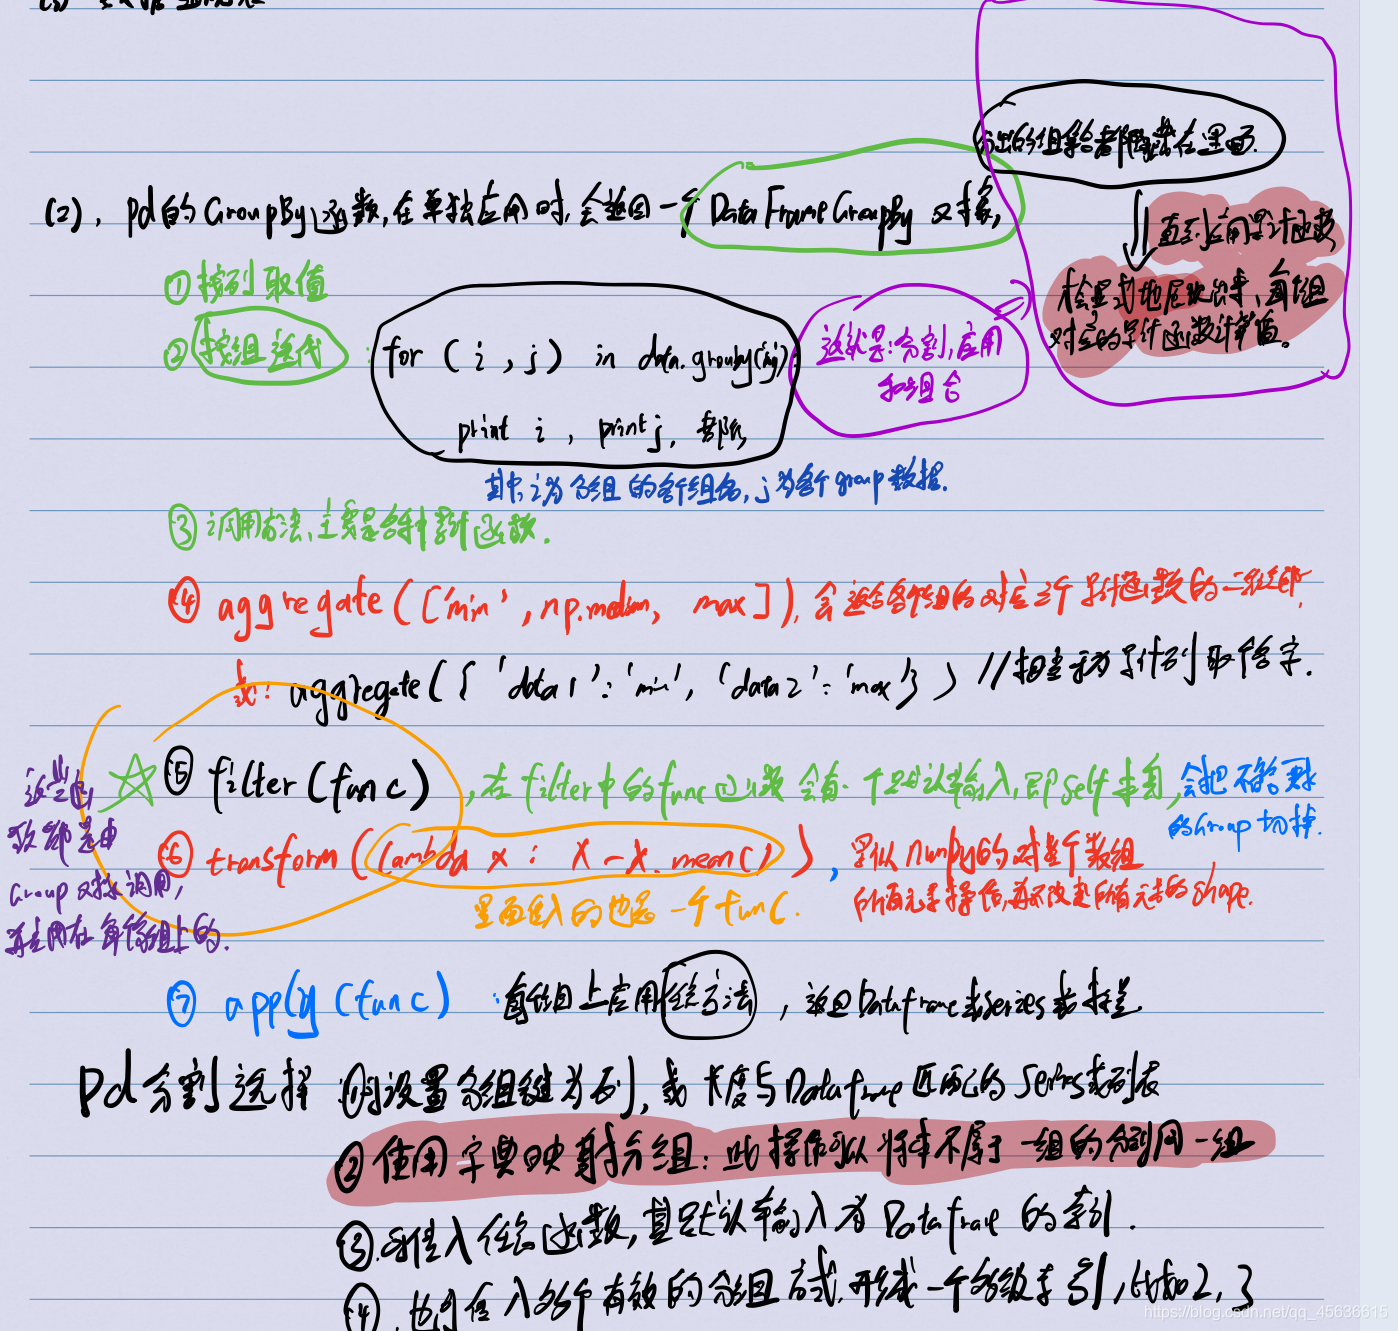 分出的组集合都隐藏在里面.
(2), pd的GroupBy函数,在单独应用时,会返回一个DataFrameGroupBy对象,
直到应用累计函数
才会显式地层次出来,每组
对应的累计函数计算值。
① 按列取值
② 按组迭代: for (i, j) in data.grouby('key'):
print i, printj, 都隐
这就是:分割,应用
和组合
其中i为分组的各个组名,j为各个group数据.
③ 调用方法,主要是各种累计函数.
④ aggregate(['min', np.median, max]), 会返回各个组的对应三个累计函数的
或: aggregate({'data1':'min', 'data2':'max'}) //相当于为累计列取名字.
⑤ filter(func), 在filter中的func函数会有一个默认输入,即self本身, 会把不符合要求
的Group切掉.
⑥ transform(lambda x: x-x.mean()), 类似numpy的对整个数组
所有元素操作,并不改变所有元素的shape.
里面传入的也是一个func.
这些函
数都是由
Group对象调用,
并应用在每个组上的.
⑦ apply(func): 每个组上应用任意方法, 返回Dataframe或series或标量.
Pd分割选择 ①可设置分组键为列,或长度与Dataframe匹配的Series或列表
② 使用字典映射分组:此操作可以将本不属于一组的分到同一组
③.可传入任意函数,其默认输入为Dataframe的索引.
④.也可传入多个有效的分组方式,形成一个多级索引,比如2,3
https://blog.csdn.net/qq_45636615